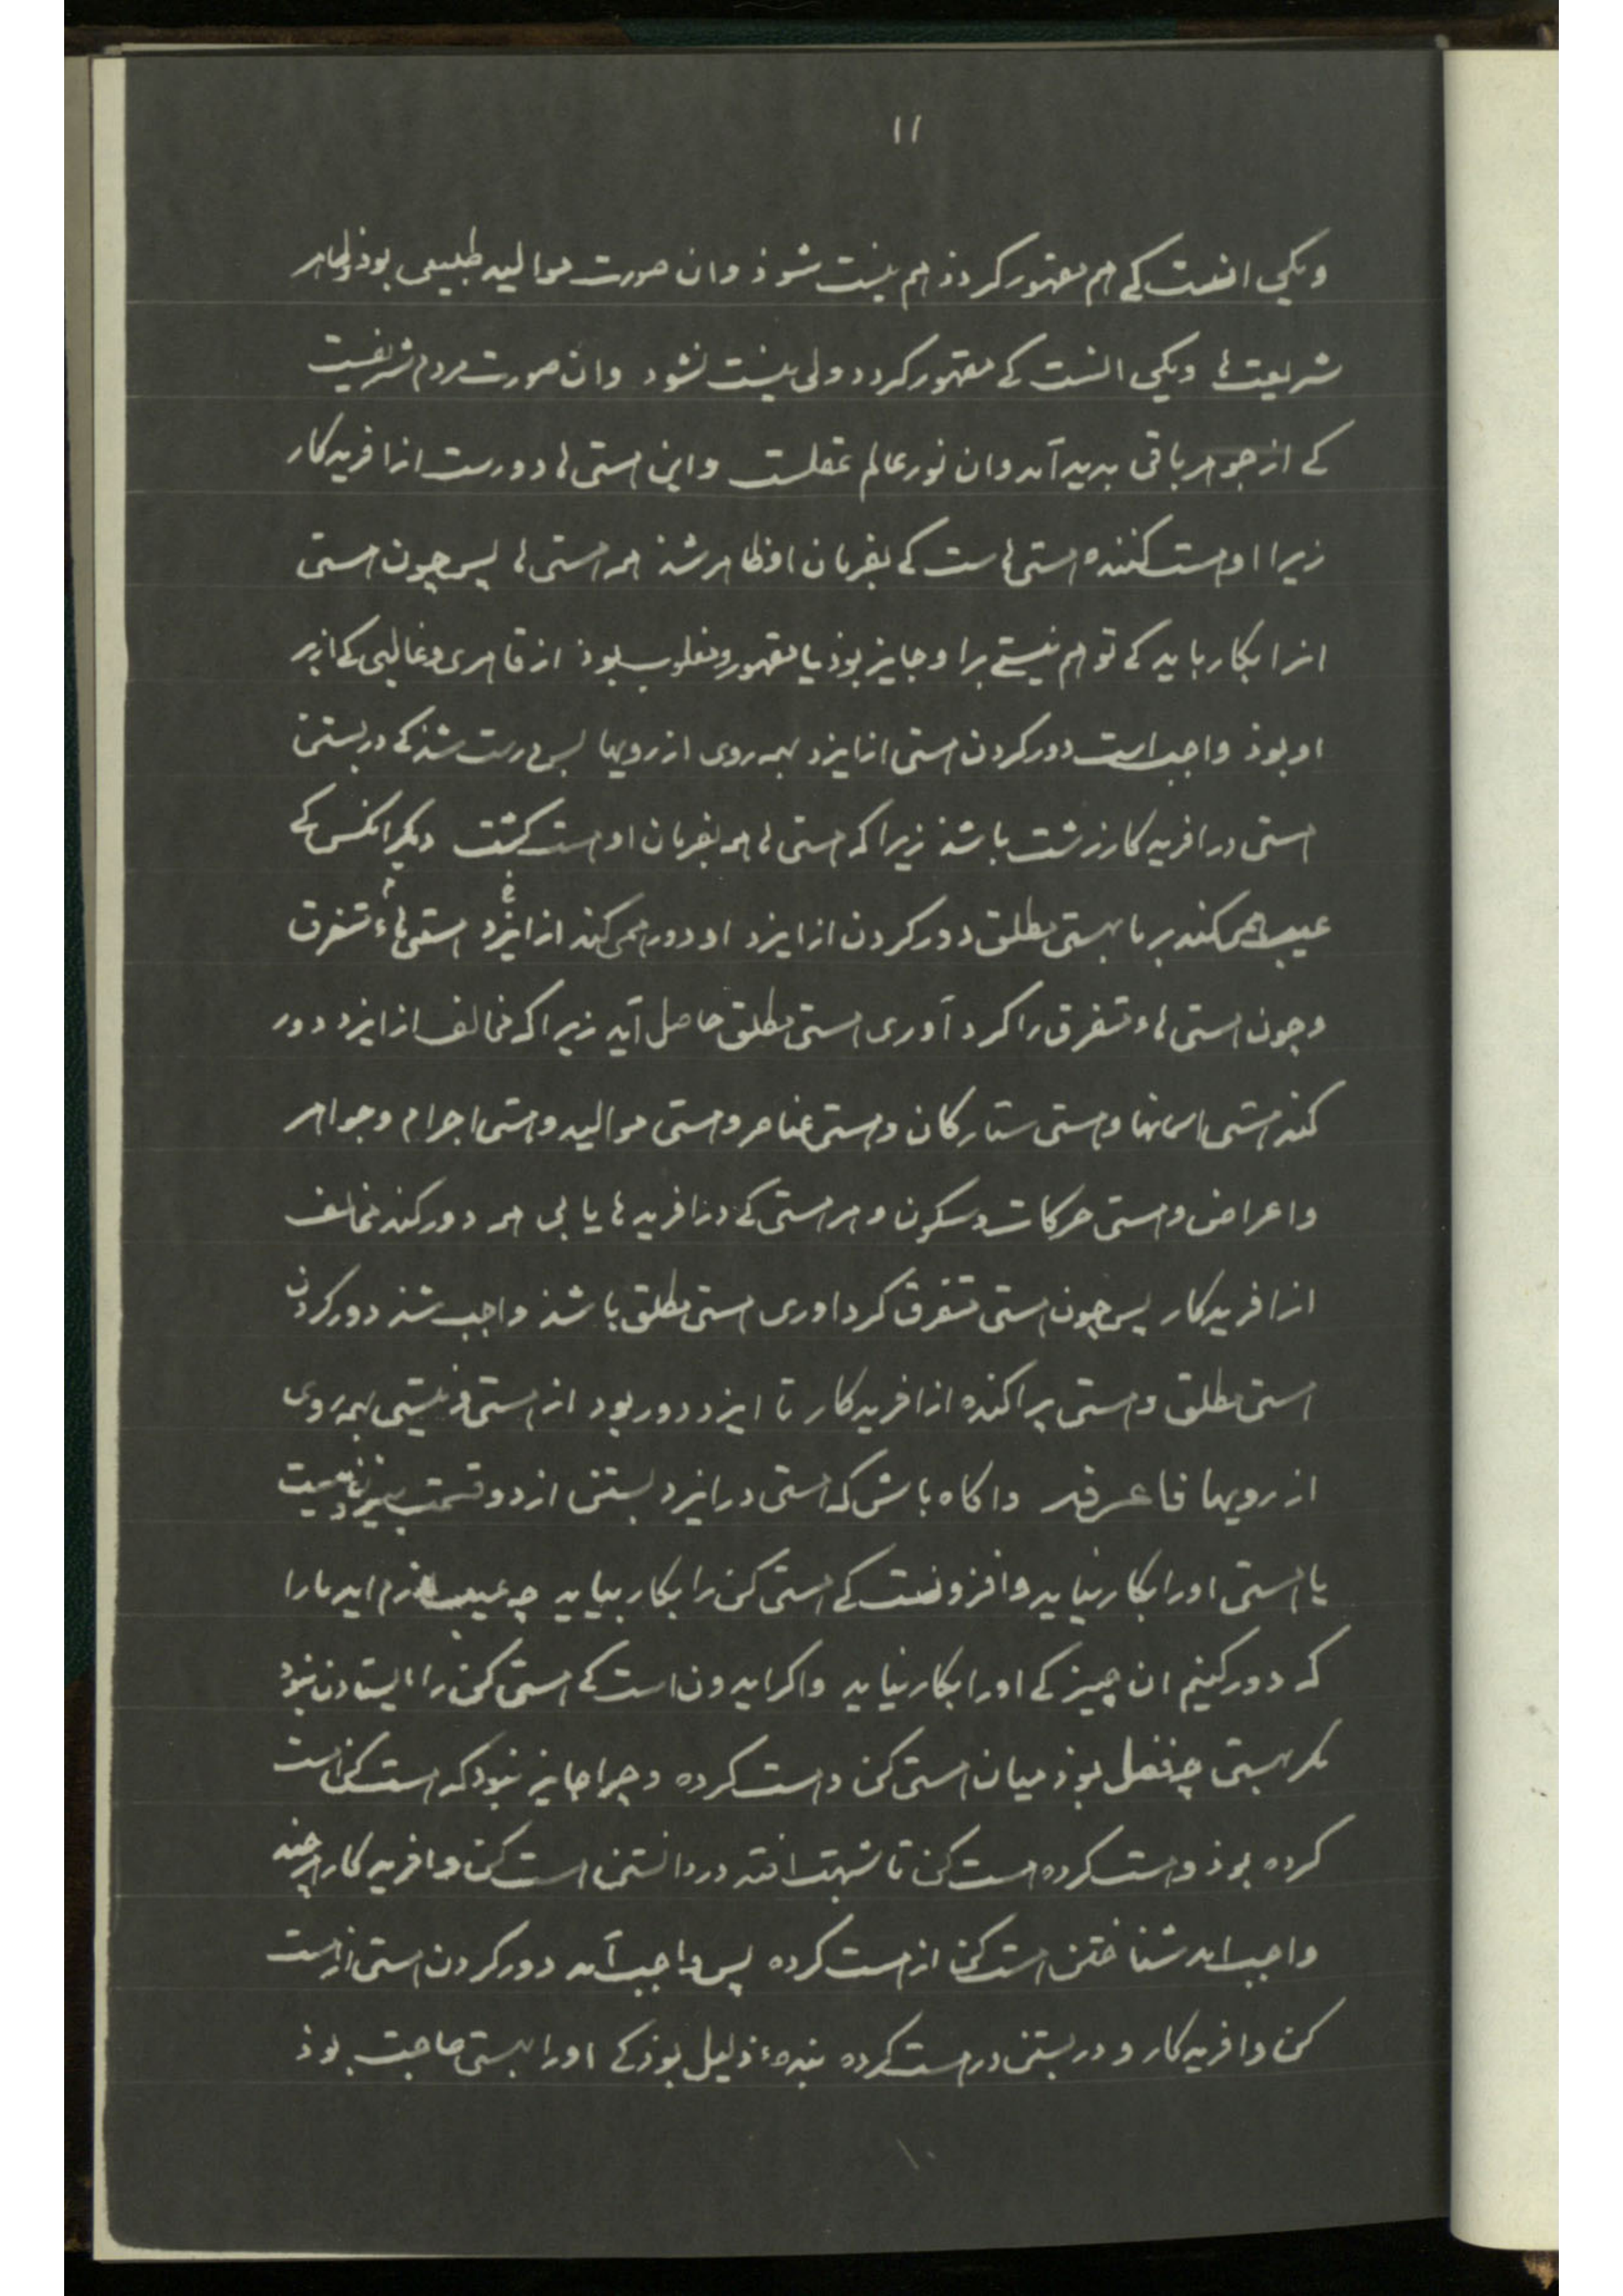 ۱۱
ویکی انست کے هم مقهور کردذ هم نیست شوذ وان صورت موالید طبیعی بوذ وظاهر
شریعت ها ویکی انست کے مقهور کردد ولی نیست نشود وان صورت مردم شریفیت
کے از جوهر باقی بدید آمد وان نور عالم عقلست واین هستی ها دورست از افریدکار
زیرا او هست کننده هستی هاست کے بفرمان او ظاهر شذ همه هستی ها پس چون هستی
انرا بکار باید کے توهم نیستے برا و جایز بوذ یا مقهور ومغلوب بوذ از قاهری وغالبی کے از بر
او بوذ واجب است دور کردن هستی از ایزد بهمه روی از رویها بس درست شذ کے در بستن
هستی در افریدکار زشت باشذ زیرا که هستی ها همه بفرمان او هست کشت دیکر انکس کے
عیب همی کند بر ما بهستی مطلق دور کردن از ایزد او دور همی کند از ایزد هستی هاء متفرق
وجون هستی هاء متفرق را کرد آوری هستی مطلق حاصل آید زیرا که مخالف از ایزد دور
کند هستی اسمانها وهستی ستارکان وهستی عناصر وهستی موالید وهستی اجرام وجواهر
واعراض وهستی حرکات وسکون وهر هستی کے در افریدها یابی همه دور کند مخالف
از افریدکار پس چون هستی متفرق کرد اوری هستی مطلق باشذ واجب شذ دور کردن
هستی مطلق وهستی پراکنده از افریدکار تا ایزد دور بود از هستی ونیستی بهمه روی
از رویها فاعرفه واکاه باش که هستی در ایزد بستن از دو قسمت بیرون نیست
یا هستی اورا بکار نیاید وافزونست کے هستی کن را بکار بیاید چه عیب لازم اید مارا
که دور کنیم ان چیز کے اورا بکار نیاید واکر ایدون است کے هستی کن را ایستادن نبود
مکر بهستی چه فضل بوذ میان هستی کن وهست کرده وچرا جایز نبود که هست کن هست
کرده بوذ وهست کرده هست کن تا شبهت افتد در دانستن هست کن وافریدکار هرچند
واجب امد شناختن هست کن از هست کرده پس واجب آمد دور کردن هستی از هست
کن وافریدکار و در بستن در هست کرده بندهء ذلیل بوذ کے اورا بهستی حاجت بوذ